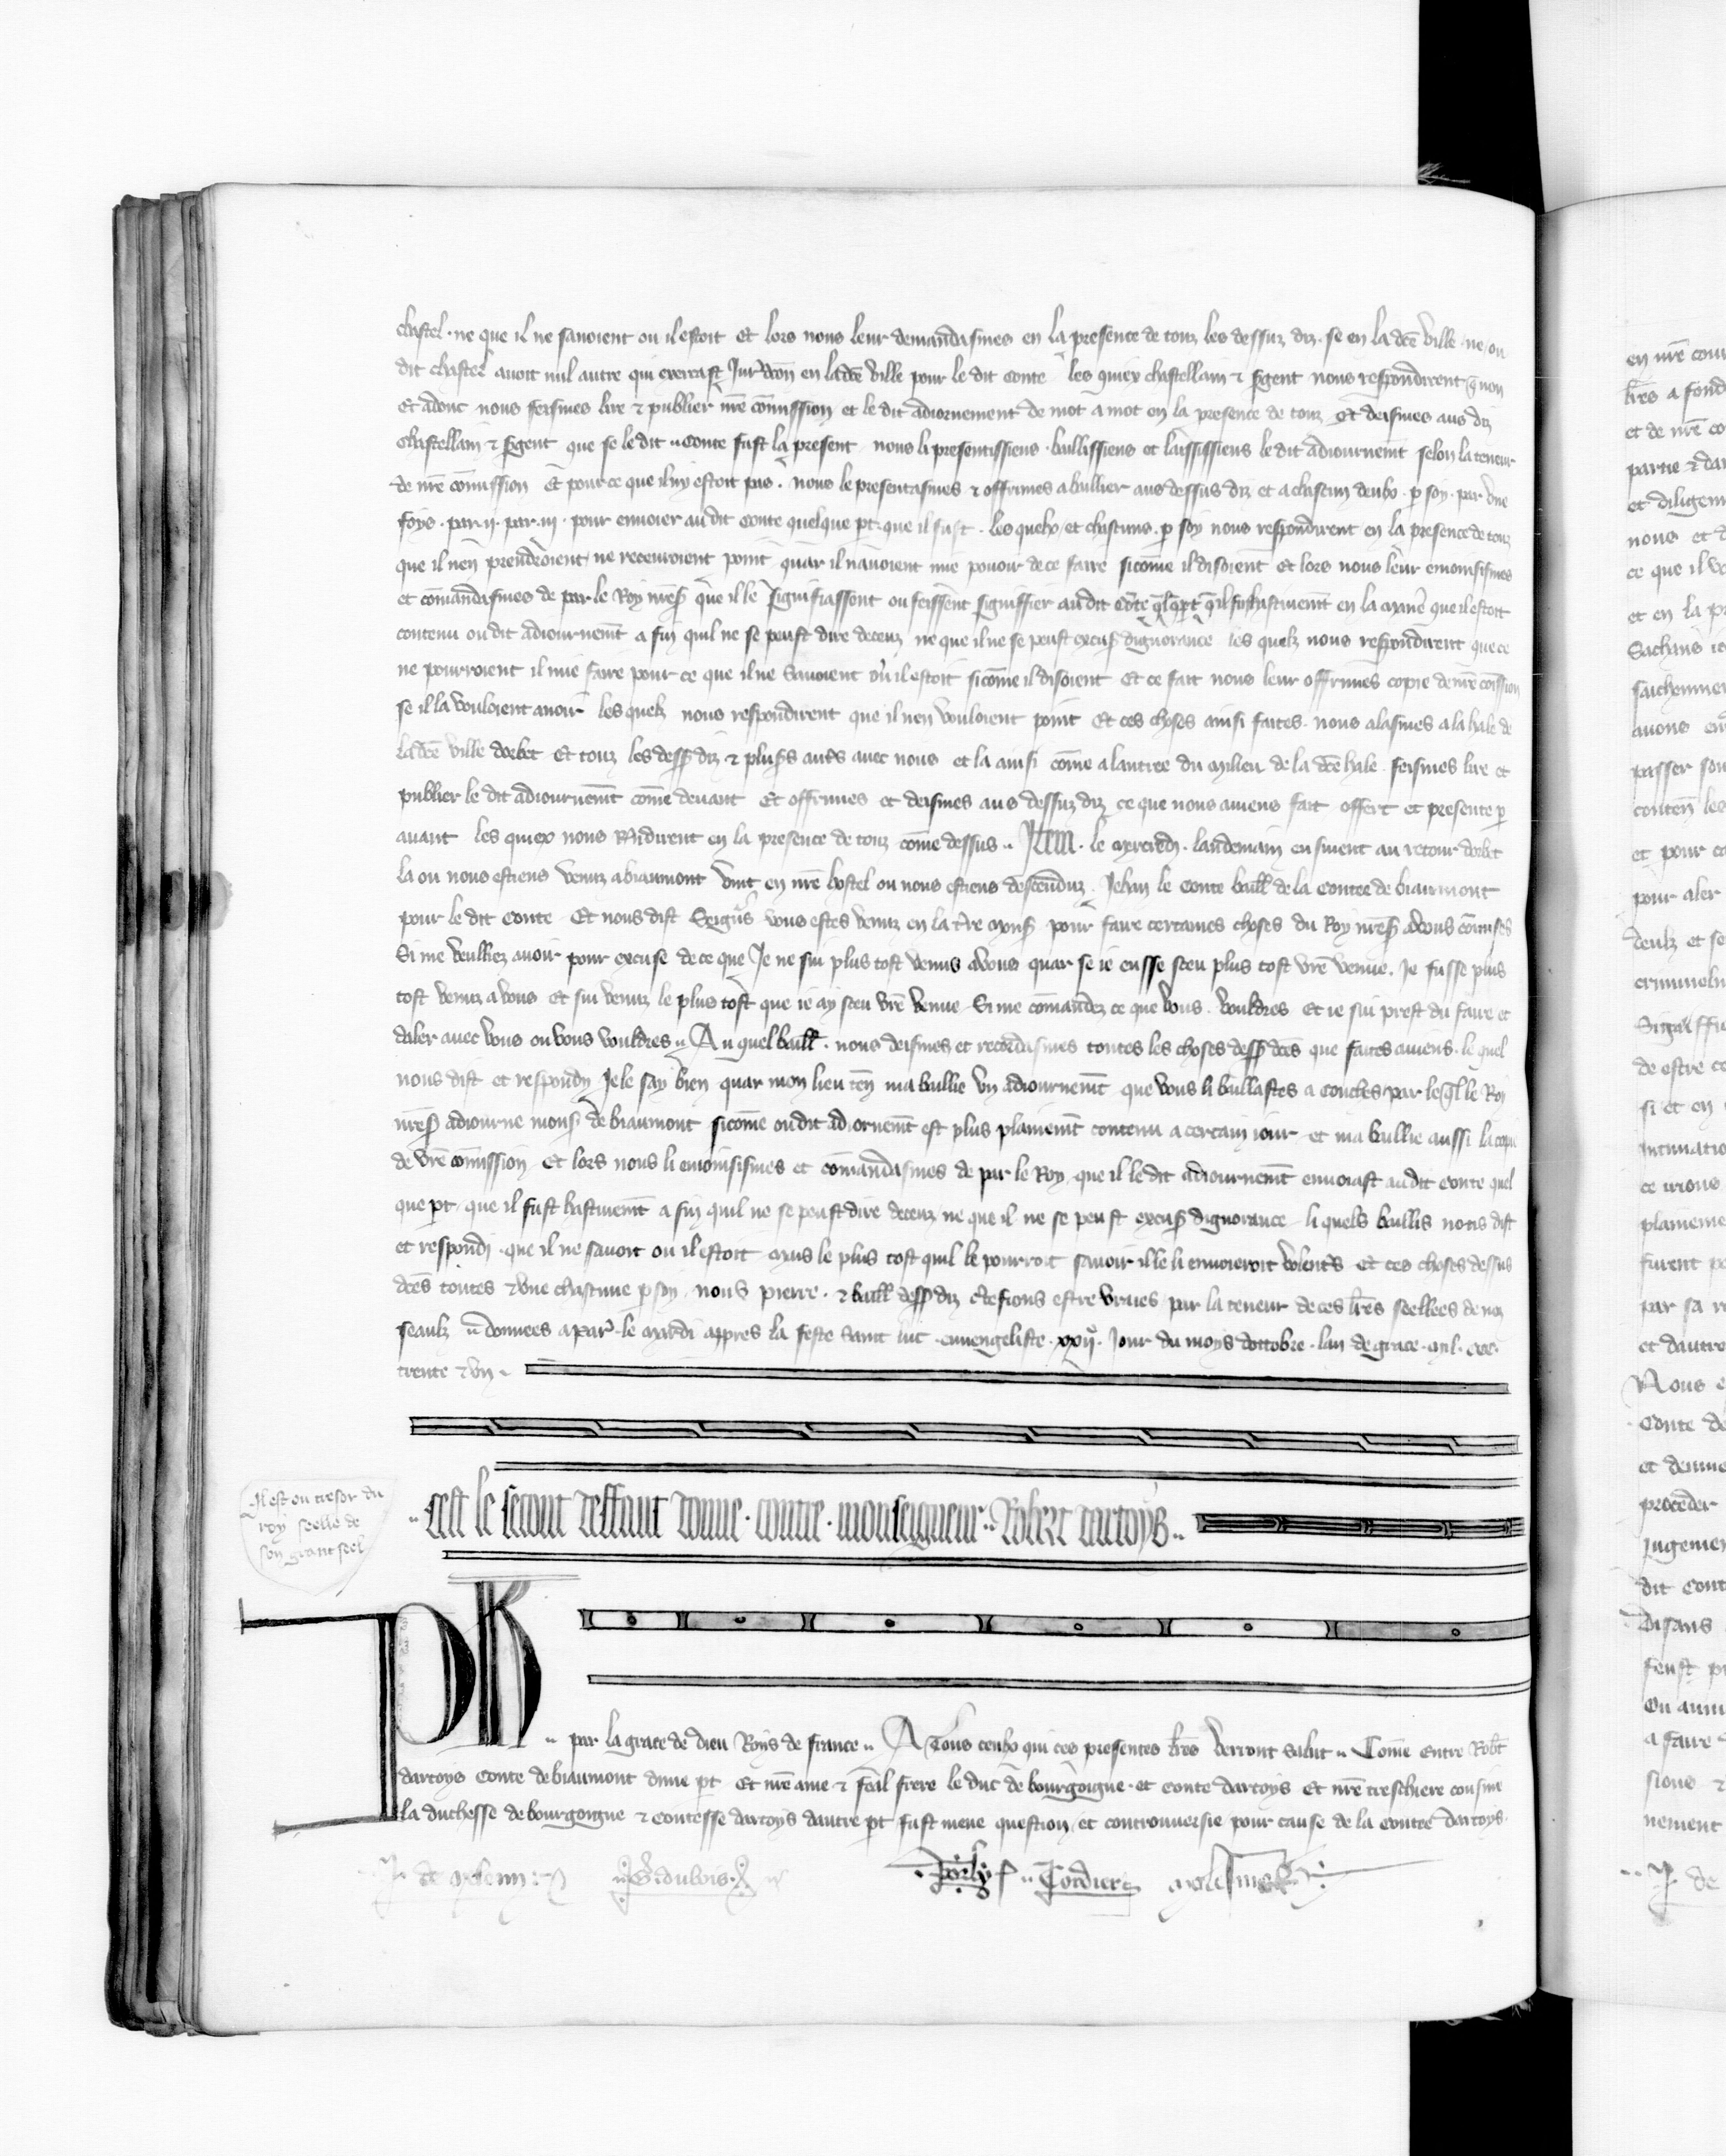 chastel · ne que il ne savoient ou il estoit Et lors nous leur demandasmes en la presence de touz les dessuz diz · se en la dce ville ne ou
dit chastel avoit nul autre qui exercast Juridcon en la dce ville pour le dit Conte les quiex chastellain & sgent nous respondirent q non
Et adonc nous feismes lire & publier nre comission et le dit adiornement de mot a mot en la presence de touz Et deismes aus diz
Chastellain & sgent que se le dit Conte fust la present nous li presentissiens · baillissiens et laississiens le dit adiournemt selon la teneur
de nre comission Et pource que il ny estoit pas · nous le presentasmes & offrimes a baillier aus dessus diz et a chascun deulx · p soy · par une
foys · par ij · par iij · pour envoier au dit Conte quelque pt que il fust · les quelx et chascuns · p soy nous respondirent en la presence de touz
que il nen prendroient ne recevroient point quar il navoient mie povoir de ce faire sicome il disoient Et lors nous leur enioinsismes
et comandasmes de par le Roy nres que il le signifiassent ou feissent signiffier au dit Cote qlqpt quil fust hastivemt en la maniere que il estoit
contenu ou dit adiournemt a fin quil ne se peust dire deceuz ne que il ne se peust excus dignorance les quelz nous respondirent que ce
ne pourroient il mie faire pour ce que il ne savoient ou il estoit sicome il disoient Et ce fait nous leur offrimes copie de nre comission
se il la vouloient avoir les quelz nous respondirent que il nen vouloient point Et ces choses ainsi faites · nous alasmes a la hale de
la dce ville dorbec Et touz les dess diz & plus auts avec nous et la ainsi come a lentree du milieu de la dce hale feismes lire et
publier le dit adiournemt come devant Et offrimes et deismes aus dessuz diz ce que nous aviens fait offert et presente p
avant les quiex nous Rndirent en la presence de touz come dessus Item · le mercredi · landemain ensivent au retour dorbec
la ou nous estiens venuz a biaumont vint en nre hostel ou nous estiens descenduz · Jehan le Conte baill de la Contee de biaumont
pour le dit Conte Et nous dist Seigurs vous estes venuz en la tre mons pour faire certaines choses du Roy nres a vous comises
Si me veulliez avoir pour excuse de ce que Je ne sui plus tost venus a vous quar se ie eusse sceu plus tost vre venue · Je fusse plus
tost venuz a vous et sui venuz le plus tost que ie ay sceu vre venue Si me comandez ce que vous · vouldres et ie sui prest du faire et
daler avec vous ou vous vouldres Au quel baill · nous deismes et recordasmes toutes les choses dess dces que faites aviens · le quel
nous dist et respondy Je le say bien quar mon lieu ten ma baillie un adiournemt que vous li baillastes a Conches par le ql le Roy
nres adiourne mons de biaumont sicome ou dit adiornemt est plus plainemt contenu a certain iour et ma baillie aussi la copie
de vre comission Et lors nous li enioinsismes et comandasmes de par le Roy que il le dit adiournemt envoiast au dit Conte quel
que pt que il fust hastivemt a fin quil ne se peust dire deceuz ne que il ne se peust excus dignorance li quels baillis nous dist
et respondi · que il ne savoit ou il estoit mais le plus tost quil le pourroit savoir il le li envoieroit volents Et ces choses dessus
dces toutes & une chascune p soy nous pierre · & baill dess diz ctefions estre vraies par la teneur de ces lres seellees de noz
seaulz donnees a par · le mardi appres la feste saint luc · euvengeliste · xxij · Jour du moys dottobre · lan de grace · mil · ccc ·
trente & un
Il est ou tresor du
roy seelle de
son grant seel
Cest le secont deffaut donne · contre · monseigneur Robert dartoys
PH
par la grace de dieu Roys de france A Tous ceulx qui ces presentes lres verront Salut Come entre Robt
dartoys Conte de biaumont dune pt Et nre ame & feal frere le duc de bourgoigne · et Conte dartoys Et nre treschiere cousine
la duchesse de bourgoigne & Contesse dartoys dautre pt fust meue question et controuversie pour cause de la Conte dartoys ·
Cordier